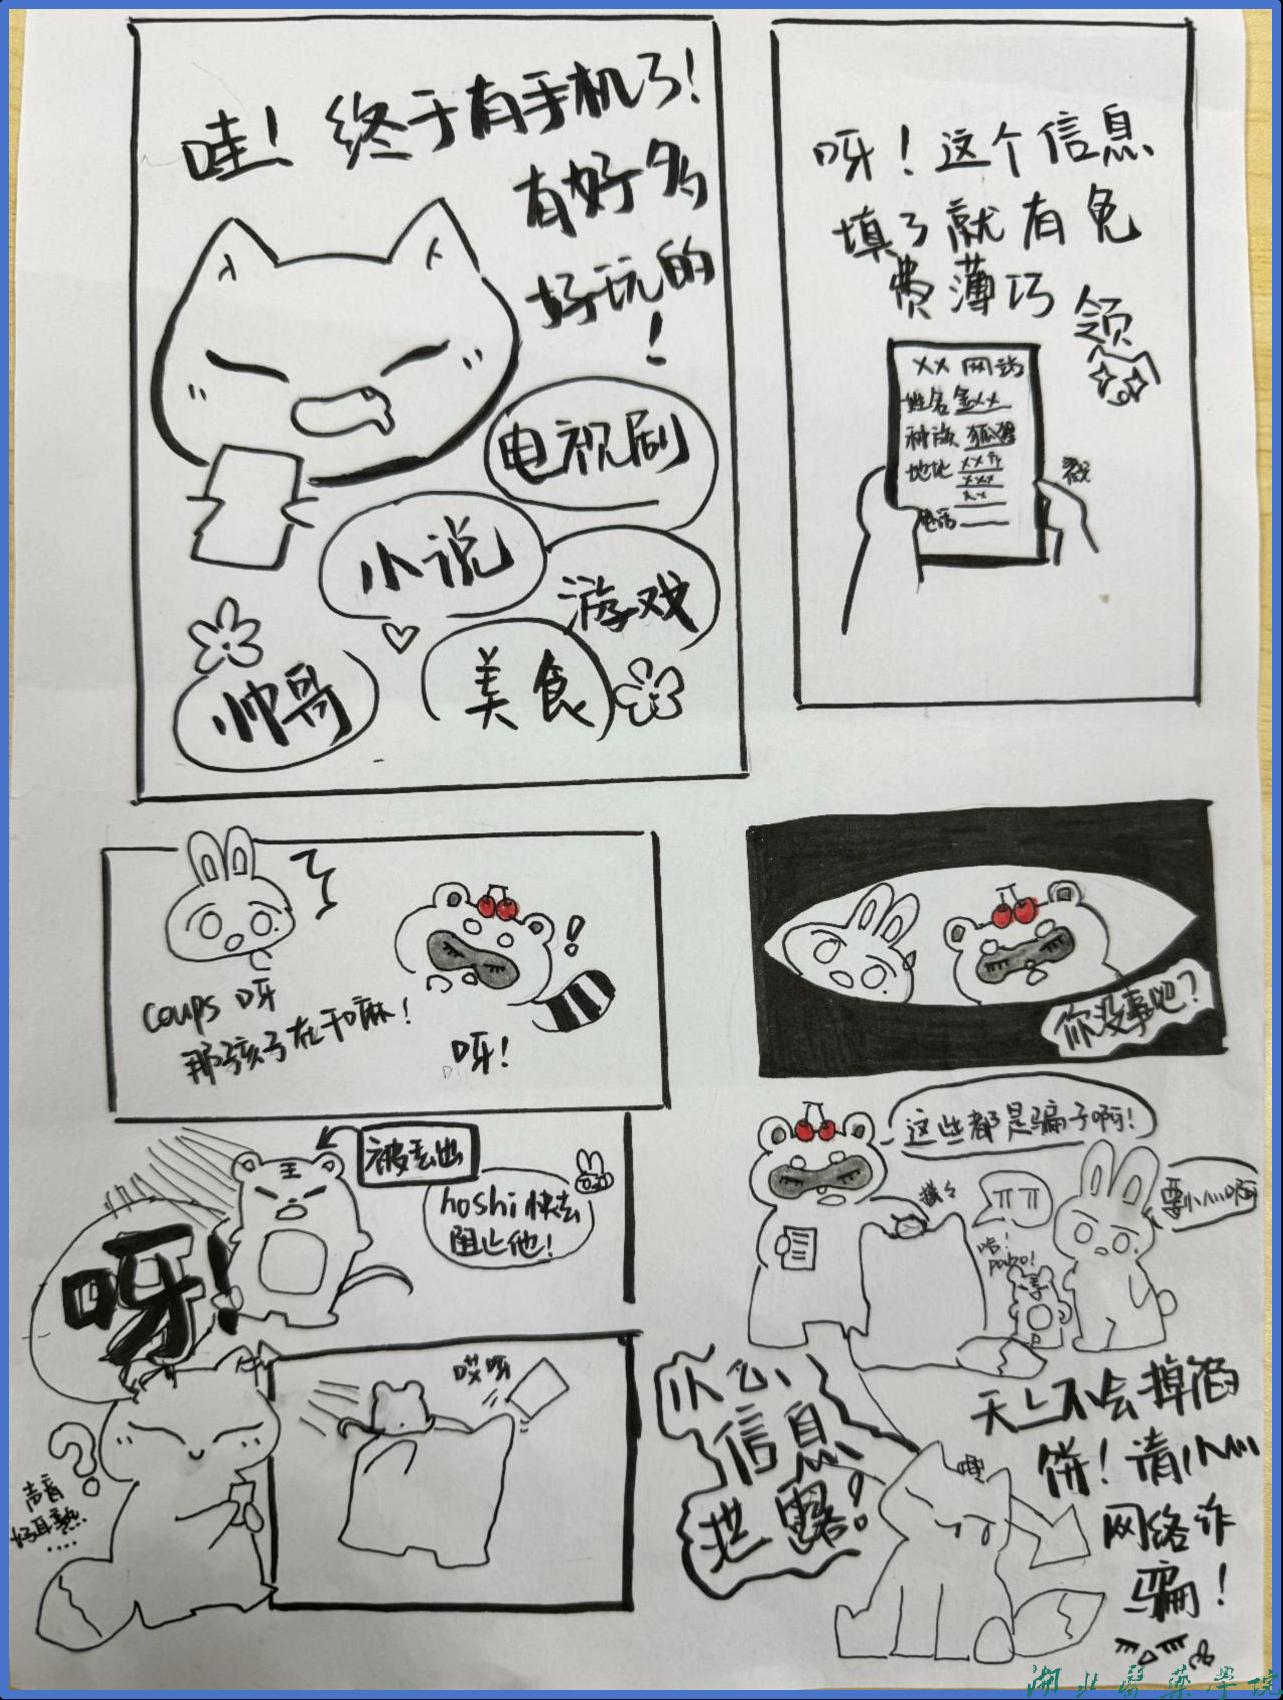 哇！终于有手机了！
有好多
好玩的
！
电视剧
小说
游戏
帅哥
美食
呀！这个信息
填了就有免
费薄巧
领
XX 网站
姓名 金XX
种族 狐狸
地址 XX市
XXX
XX
电话
戳
coups 呀
那孩子在干嘛！
！
呀！
你没事吧？
被丢出
hoshi快去
阻止他！
呀！
？
声音
好耳熟
....
哎呀
这些都是骗子啊！
要小心啊
小心
信息
泄露！
天上不会掉馅
饼！请小心
网络诈
骗！
湖北医药学院